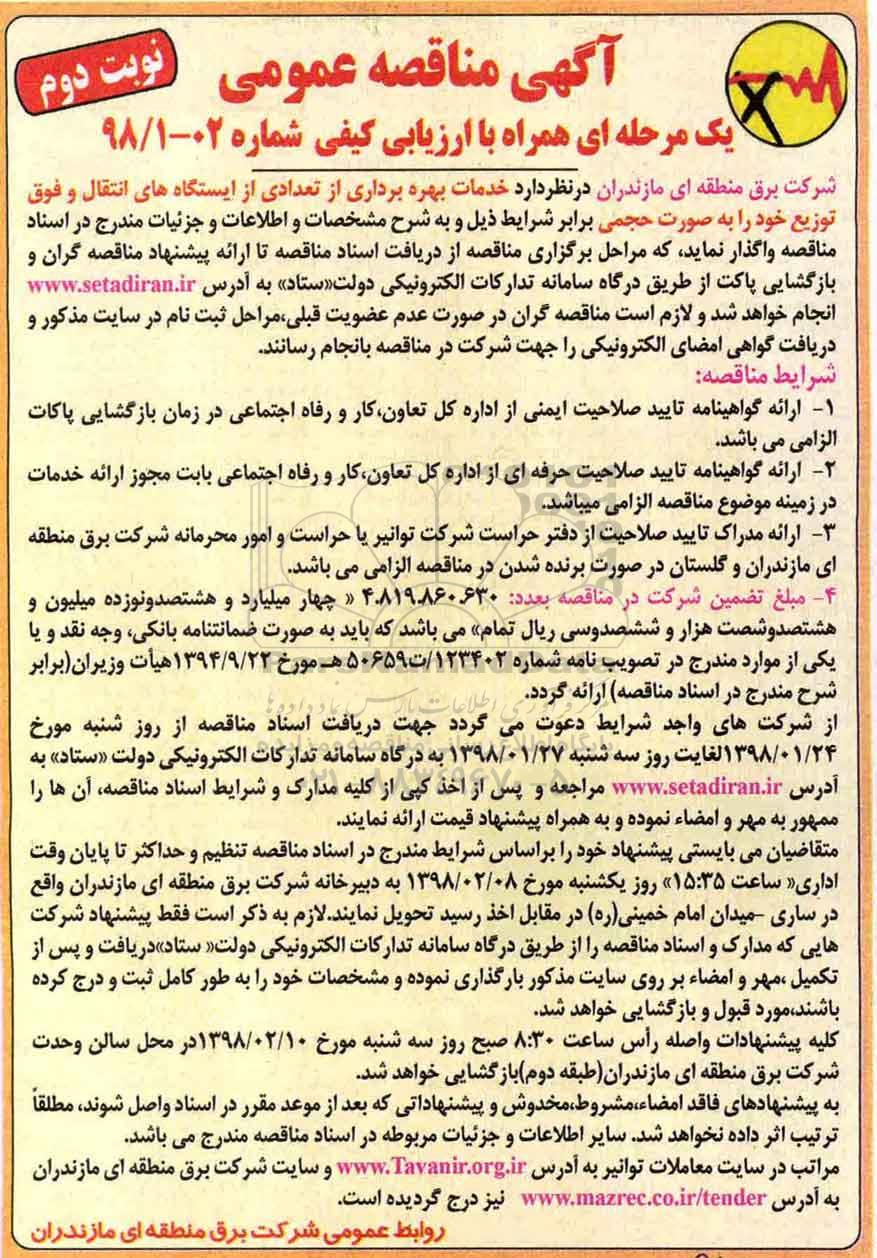 نوبت دوم
آگهی مناقصه عمومی
یک مرحله ای همراه با ارزیابی کیفی شماره ۰۲-۹۸/۱
شرکت برق منطقه ای مازندران درنظردارد خدمات بهره برداری از تعدادی از ایستگاه های انتقال و فوق
توزیع خود را به صورت حجمی برابر شرایط ذیل و به شرح مشخصات و اطلاعات و جزئیات مندرج در اسناد
مناقصه واگذار نماید، که مراحل برگزاری مناقصه از دریافت اسناد مناقصه تا ارائه پیشنهاد مناقصه گران و
بازگشایی پاکت از طریق درگاه سامانه تدارکات الکترونیکی دولت«ستاد» به آدرس www.setadiran.ir
انجام خواهد شد و لازم است مناقصه گران در صورت عدم عضویت قبلی،مراحل ثبت نام در سایت مذکور و
دریافت گواهی امضای الکترونیکی را جهت شرکت در مناقصه بانجام رسانند.
شرایط مناقصه:
۱- ارائه گواهینامه تایید صلاحیت ایمنی از اداره کل تعاون،کار و رفاه اجتماعی در زمان بازگشایی پاکات
الزامی می باشد.
۲- ارائه گواهینامه تایید صلاحیت حرفه ای از اداره کل تعاون،کار و رفاه اجتماعی بابت مجوز ارائه خدمات
در زمینه موضوع مناقصه الزامی میباشد.
۳- ارائه مدراک تایید صلاحیت از دفتر حراست شرکت توانیر یا حراست و امور محرمانه شرکت برق منطقه
ای مازندران و گلستان در صورت برنده شدن در مناقصه الزامی می باشد.
۴- مبلغ تضمین شرکت در مناقصه بعدد: ۴.۸۱۹.۸۶۰.۶۳۰ « چهار میلیارد و هشتصدونوزده میلیون و
هشتصدوشصت هزار و ششصدوسی ریال تمام» می باشد که باید به صورت ضمانتنامه بانکی، وجه نقد و یا
یکی از موارد مندرج در تصویب نامه شماره ۱۲۳۴۰۲/ت۵۰۶۵۹ هـ مورخ ۱۳۹۴/۹/۲۲هیأت وزیران(برابر
شرح مندرج در اسناد مناقصه) ارائه گردد.
از شرکت های واجد شرایط دعوت می گردد جهت دریافت اسناد مناقصه از روز شنبه مورخ
۱۳۹۸/۰۱/۲۴لغایت روز سه شنبه ۱۳۹۸/۰۱/۲۷ به درگاه سامانه تدارکات الکترونیکی دولت «ستاد» به
آدرس www.setadiran.ir مراجعه و پس از اخذ کپی از کلیه مدارک و شرایط اسناد مناقصه، آن ها را
ممهور به مهر و امضاء نموده و به همراه پیشنهاد قیمت ارائه نمایند.
متقاضیان می بایستی پیشنهاد خود را براساس شرایط مندرج در اسناد مناقصه تنظیم و حداکثر تا پایان وقت
اداری« ساعت ۱۵:۳۵» روز یکشنبه مورخ ۱۳۹۸/۰۲/۰۸ به دبیرخانه شرکت برق منطقه ای مازندران واقع
در ساری -میدان امام خمینی(ره) در مقابل اخذ رسید تحویل نمایند.لازم به ذکر است فقط پیشنهاد شرکت
هایی که مدارک و اسناد مناقصه را از طریق درگاه سامانه تدارکات الکترونیکی دولت« ستاد»دریافت و پس از
تکمیل ،مهر و امضاء بر روی سایت مذکور بارگذاری نموده و مشخصات خود را به طور کامل ثبت و درج کرده
باشند،مورد قبول و بازگشایی خواهد شد.
کلیه پیشنهادات واصله رأس ساعت ۸:۳۰ صبح روز سه شنبه مورخ ۱۳۹۸/۰۲/۱۰در محل سالن وحدت
شرکت برق منطقه ای مازندران(طبقه دوم)بازگشایی خواهد شد.
به پیشنهادهای فاقد امضاء،مشروط،مخدوش و پیشنهاداتی که بعد از موعد مقرر در اسناد واصل شوند، مطلقاً
ترتیب اثر داده نخواهد شد. سایر اطلاعات و جزئیات مربوطه در اسناد مناقصه مندرج می باشد.
مراتب در سایت معاملات توانیر به آدرس www.Tavanir.org.ir و سایت شرکت برق منطقه ای مازندران
به آدرس www.mazrec.co.ir/tender نیز درج گردیده است.
روابط عمومی شرکت برق منطقه ای مازندران